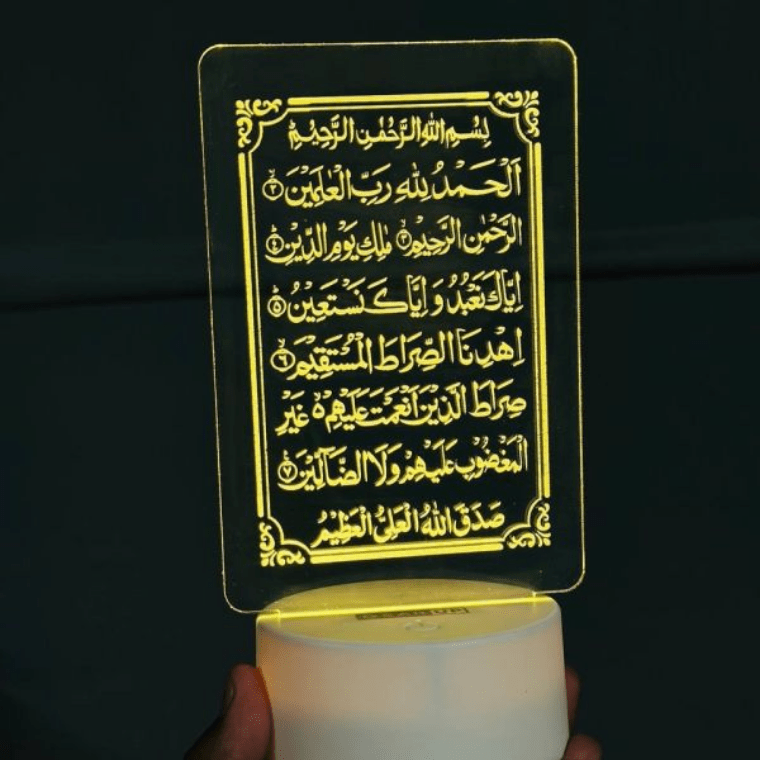 بِسْمِ اللهِ الرَّحْمٰنِ الرَّحِيْمِ
اَلْحَمْدُ لِلّٰهِ رَبِّ الْعٰلَمِيْنَ ۲
الرَّحْمٰنِ الرَّحِيْمِ ۳ مٰلِكِ يَوْمِ الدِّيْنِ ۴
اِيَّاكَ نَعْبُدُ وَ اِيَّاكَ نَسْتَعِيْنُ ۵
اِهْدِنَا الصِّرَاطَ الْمُسْتَقِيْمَ ۶
صِرَاطَ الَّذِيْنَ اَنْعَمْتَ عَلَيْهِمْ ۵ غَيْرِ
الْمَغْضُوْبِ عَلَيْهِمْ وَلَا الضَّآلِّيْنَ ۷
صَدَقَ اللهُ الْعَلِىُّ الْعَظِيْمُ